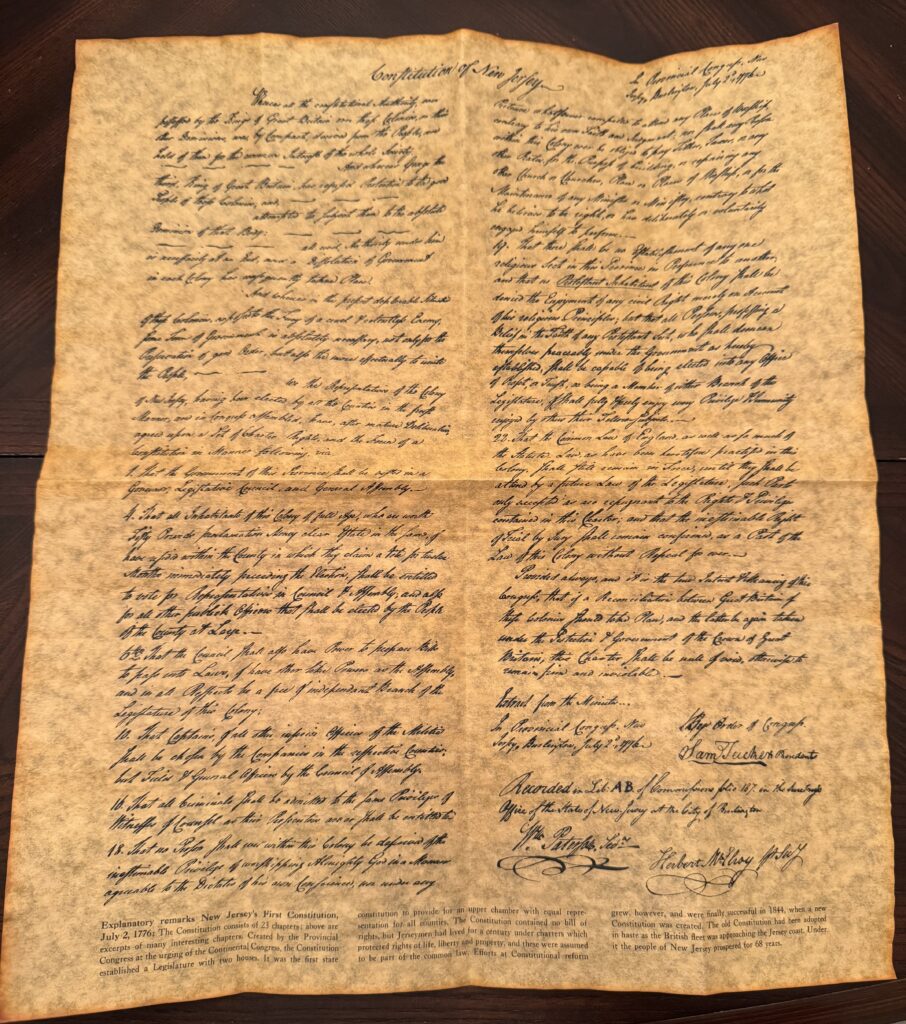 Constitution of New Jersey
In Provincial Congress, New
Jersey, Burlington, July 2d, 1776.
Whereas all the constitutional Authority, ever
possessed by the Kings of Great Britain over these Colonies, or their
other Dominions, was by Compact, derived from the People, and
held of them for the common Interest of the whole Society,
And whereas George the
third, King of Great Britain, has refused Protection to the good
People of these Colonies, and,
attempted to subject them to the absolute
Dominion of that Body;
all civil Authority under him
is necessarily at an End, and a Dissolution of Government
in each Colony has consequently taken Place.
And whereas in the present deplorable Situation
of these Colonies, exposed to the Fury of a cruel & relentless Enemy,
some Form of Government is absolutely necessary, not only for the
Preservation of good Order, but also the more effectually to unite
the People,
We the Representatives of the Colony
of New Jersey, having been elected by all the Counties in the freest
Manner, and in Congress assembled, have, after mature Deliberations,
agreed upon a Set of Charter Rights, and the Form of a
Constitution in Manner following, viz.
1. That the Government of this Province shall be vested in a
Governor, Legislative Council, and General Assembly.
4. That all Inhabitants of this Colony of full Age, who are worth
Fifty Pounds proclamation Money clear Estate in the same, &
have resided within the County in which they claim a Vote for twelve
Months immediately preceding the Election, shall be entitled
to vote for Representatives in Council & Assembly; and also
for all other publick Officers that shall be elected by the People
of the County at Large.
6th. That the Council shall also have Power to prepare Bills
to pass into Laws, & have other like Powers as the Assembly,
and in all Respects be a free & independent Branch of the
Legislature of this Colony;
10. That Captains & all other inferior Officers of the Militia
shall be chosen by the Companies in the respective Counties;
but Field & General Officers by the Council & Assembly.
16. That all Criminals shall be admitted to the same Privileges of
Witnesses & Counsel, as their Prosecutors are or shall be entitled to.
18. That no Person shall ever within this Colony be deprived of the
inestimable Privilege of worshipping Almighty God in a Manner
agreeable to the Dictates of his own Conscience, nor under any
Pretence whatsoever compelled to attend any Place of Worship,
contrary to his own Faith and Judgment; nor shall any Person
within this Colony ever be obliged to pay Tithes, Taxes, or any
other Rates, for the Purpose of building, or repairing any
other Church or Churches, Place or Places of Worship, or for the
Maintenance of any Minister or Ministry, contrary to what
he believes to be right, or has deliberately or voluntarily
engaged himself to perform.
19. That there shall be no Establishment of any one
religious Sect in this Province in Preference to another;
and that no Protestant Inhabitant of this Colony shall be
denied the Enjoyment of any civil Right merely on Account
of his religious Principles; but that all Persons, professing a
Belief in the Faith of any Protestant Sect, who shall demean
themselves peaceably under the Government as hereby
established, shall be capable of being elected into any Office
of Profit or Trust, or being a Member of either Branch of the
Legislature, & shall fully & freely enjoy every Privilege & Immunity
enjoyed by others their Fellow Subjects.
22. That the Common Law of England, as well as so much of
the Statute Law, as have been heretofore practised in this
Colony, shall still remain in Force, until they shall be
altered by a future Law of the Legislature; such Parts
only excepted as are repugnant to the Rights & Privileges
contained in this Charter; and that the inestimable Right
of Trial by Jury shall remain confirmed, as a Part of the
Law of this Colony without Repeal for ever.
Provided always, and it is the true Intent & Meaning of this
Congress, that if a Reconciliation between Great Britain &
these Colonies should take Place, and the latter be again taken
under the Protection & Government of the Crown of Great
Britain, this Charter shall be null & void, otherwise to
remain firm and inviolable.
Extract from the Minutes...
In Provincial Congress, New
Jersey, Burlington, July 2d, 1776.
By Order of Congress
Sam. Tucker President
Recorded in Lib. AB. of Commissions folio 167. in the Secretary's
Office of the State of New Jersey at the City of Burlington
Wm. Paterson, Secy.
Herbert McElroy
Explanatory remarks New Jersey's First Constitution,
July 2, 1776; The Constitution consists of 23 chapters; above are
excerpts of many interesting chapters. Created by the Provincial
Congress at the urging of the Continental Congress, the Constitution
established a Legislature with two houses. It was the first state
constitution to provide for an upper chamber with equal repre-
sentation for all counties. The Constitution contained no bill of
rights, but Jerseymen had lived for a century under charters which
protected rights of life, liberty and property, and these were assumed
to be part of the common law. Efforts at Constitutional reform
grew, however, and were finally successful in 1844, when a new
Constitution was created. The old Constitution had been adopted
in haste as the British fleet was approaching the Jersey coast. Under
it the people of New Jersey prospered for 68 years.